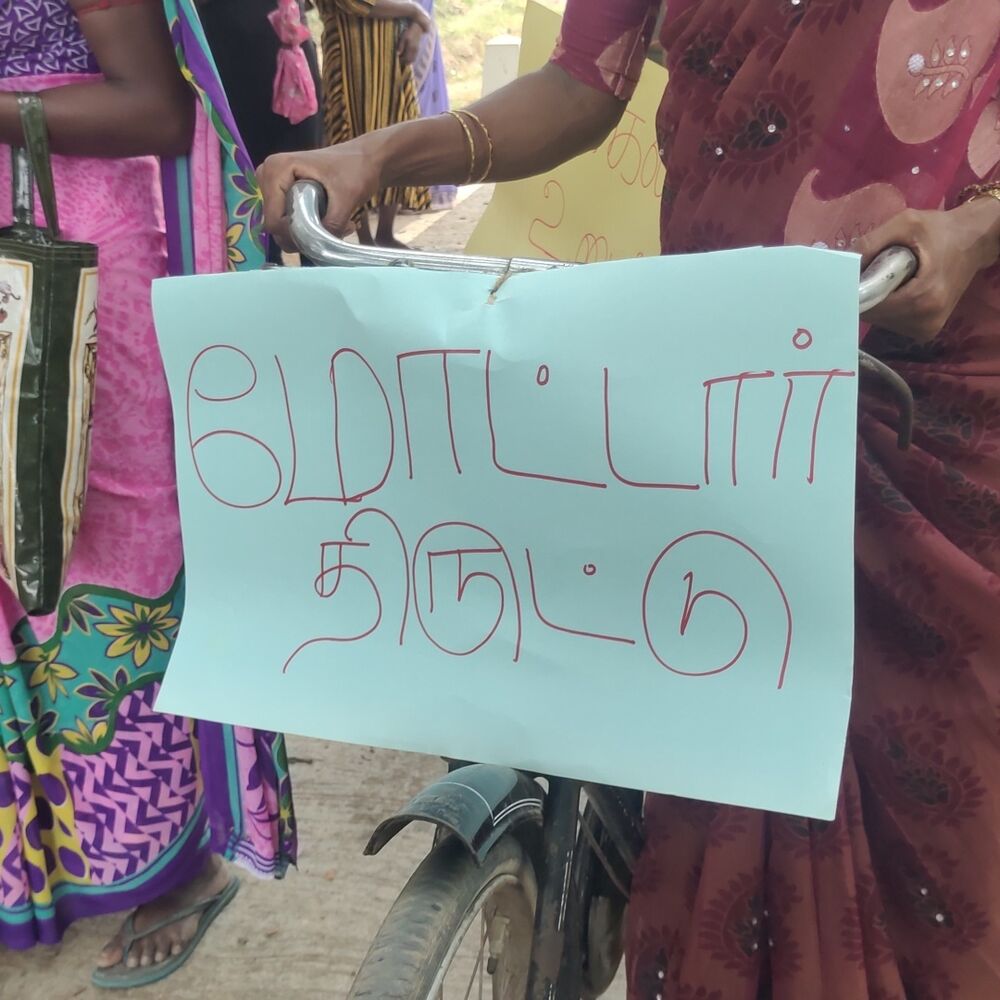 மோட்டார்
திருட்டு